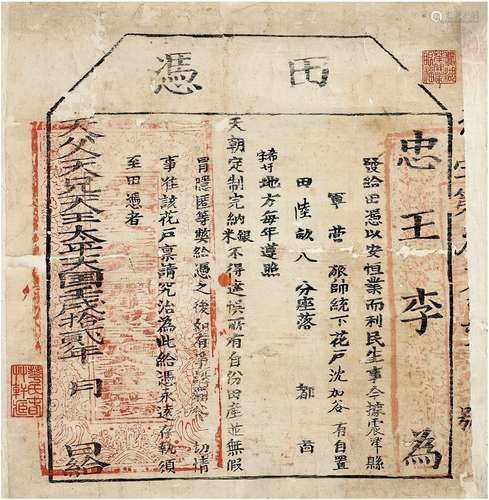 田憑
忠王李為
發給田憑以安恒業而利民生事今據震澤縣
軍 營 旅帥統下花戶沈加谷有自置
田陸畝八分座落 都 啚
地方每年遵照
天朝定制完納銀米不得違悞所有自份田產並無假
冒隱匿等獘給憑之後如有爭論 切情
事准該花戶禀請究治為此給憑永遠存執須
至田憑者
天父天兄天王太平天國壬戌拾貳年 月 日給